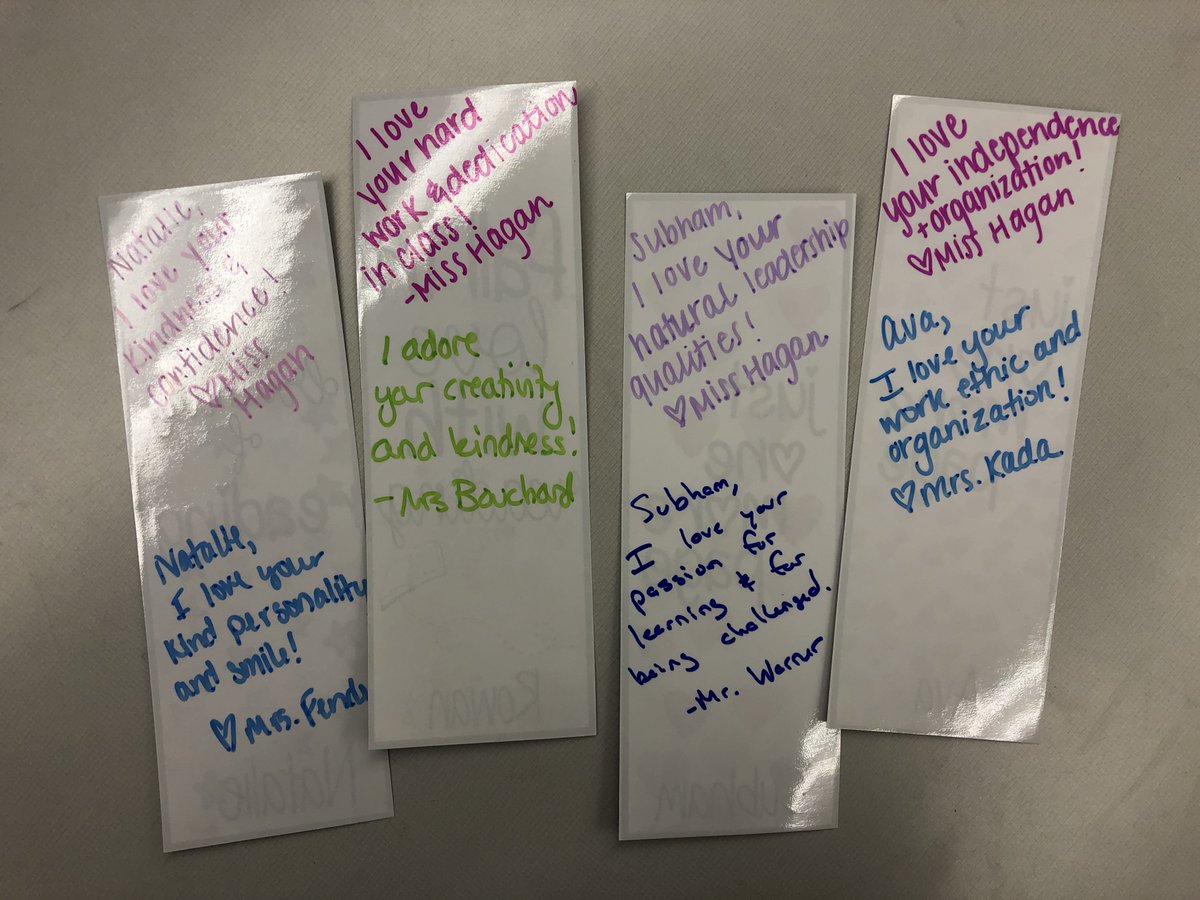 Natalie,
I love your
kindness &
confidence!
♡ Miss
Hagan
Natalie,
I love your
kind personality
and smile!
♡ Mrs.
I love
your hard
work & dedication
in class!
-Miss Hagan
I adore
your creativity
and kindness!
-Mrs Bouchard
Rowan
Natalie
Subham,
I love your
natural leadership
qualities!
♡ Miss Hagan
Subham,
I love your
passion for
learning & for
being challenged.
-Mr.
I love
your independence
+ organization!
♡ Miss Hagan
Ava,
I love your
work ethic and
organization!
♡ Mrs. Kada
Ava